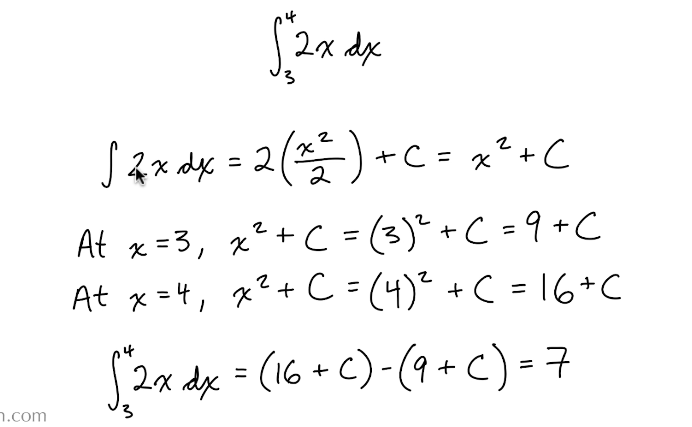 ∫₃⁴ 2x dx
∫ 2x dx = 2(x²/2) + C = x² + C
At x = 3, x² + C = (3)² + C = 9 + C
At x = 4, x² + C = (4)² + C = 16 + C
∫₃⁴ 2x dx = (16 + C) - (9 + C) = 7
n.com